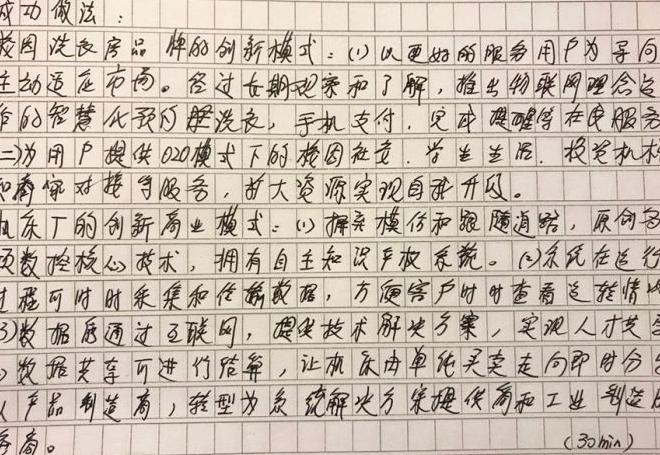 成功做法：
校园洗衣房品牌的创新模式：(1)以更好的服务用户为导向
主动适应市场。经过长期观察和了解，推出物联网理念运
作的智慧化预约型洗衣，手机支付，完成提醒等在线服务
(二)为用户提供O2O模式下的校园社交、学生生活、投资机构
和商家对接等服务，扩大资源实现自我升级。
机床厂的创新商业模式：(1)摒弃模仿和跟随道路，原创
项数控核心技术，拥有自主知识产权系统。(2)系统在运行
过程可时时采集和传输数据，方便客户时时查看运转情
3)数据后通过互联网，提供技术解决方案，实现人才共享
数据共享可进行结算，让机床由单纯买卖走向即时分享
从产品制造商，转型为系统解决方案提供商和工业制造服
务商。 (30min)